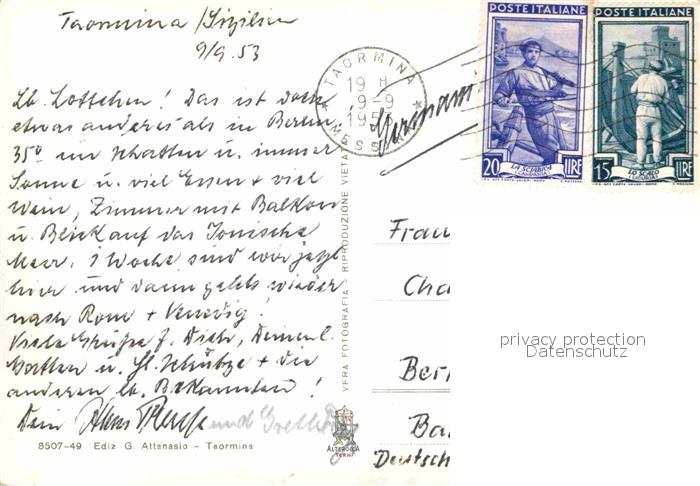 Taormina / Sizilien
9/9.53
Lb. Lottchen! Das ist doch
etwas anderes als in Berlin,
35° im Schatten u. immer
Sonne u. viel Essen + viel
Wein, Zimmer mit Balkon
u. Blick auf das Ionische
Meer. 1 Woche sind wir jetzt
hier und dann gehts wieder
nach Rom + Venedig!
Viele Grüße f. Dich, Deinen l.
u. + die
anderen lb. Bekannten!
Dein Hans und
8507-49 Ediz G. Attanasio - Taormina
VERA FOTOGRAFIA - RIPRODUZIONE VIETATA
ALTEROCCA
TERNI
TAORMINA
19 H
9-9
195
MESS
Germania
POSTE ITALIANE
20 LIRE
POSTE ITALIANE
LO SCALO
15 LIRE
Frau
Cha
Ber
Ba
Deutsch
privacy protection
Datenschutz